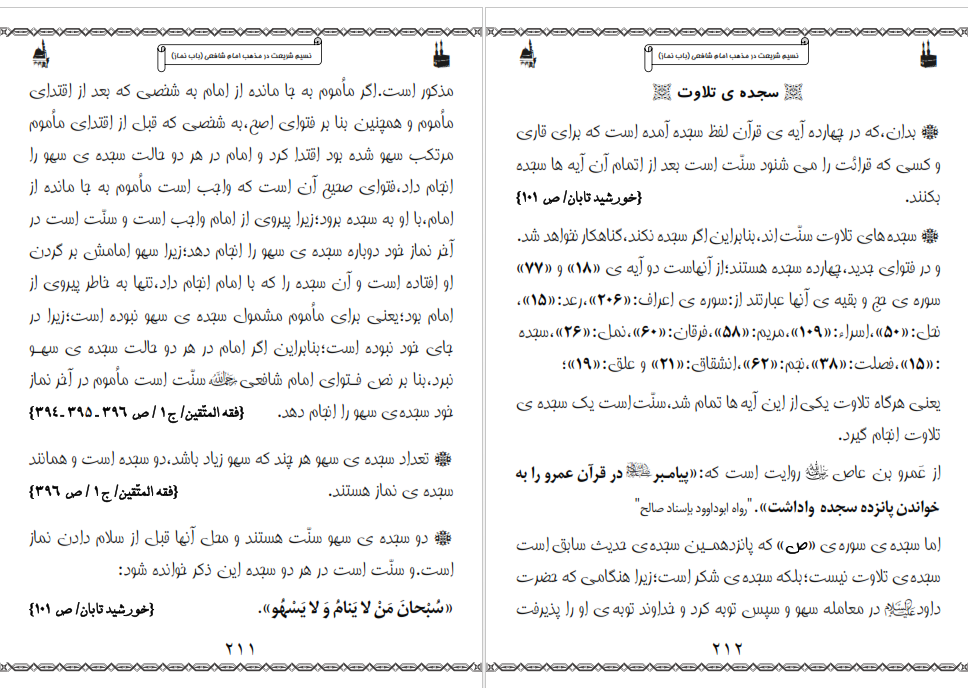 نسیم شریعت در مذهب امام شافعی (باب نماز)
مذکور است.اگر مأموم به جا مانده از امام به شخصی که بعد از اقتدای
مأموم و همچنین بنا بر فتوای اصح،به شخصی که قبل از اقتدای مأموم
مرتکب سهو شده بود اقتدا کرد و امام در هر دو حالت سجده ی سهو را
انجام داد،فتوای صحیح آن است که واجب است مأموم به جا مانده از
امام،با او به سجده برود؛زیرا پیروی از امام واجب است و سنّت است در
آخر نماز خود دوباره سجده ی سهو را انجام دهد؛زیرا سهو امامش بر گردن
او افتاده است و آن سجده را که با امام انجام داد،تنها به خاطر پیروی از
امام بود؛یعنی برای مأموم مشمول سجده ی سهو نبوده است؛زیرا در
جای خود نبوده است؛بنابراین اگر امام در هر دو حالت سجده ی سهو
نبرد،بنا بر نص فتوای امام شافعی سنّت است مأموم در آخر نماز
خود سجده‌ی سهو را انجام دهد. {فقه المتّقین/ ج۱ / ص ۳۹۶ ـ ۳۹۵ ـ ۳۹۴}
تعداد سجده ی سهو هر چند که سهو زیاد باشد،دو سجده است و همانند
سجده ی نماز هستند. {فقه المتّقین/ ج۱ / ص ۳۹۶}
دو سجده ی سهو سنّت هستند و محل آنها قبل از سلام دادن نماز
است.و سنّت است در هر دو سجده این ذکر خوانده شود:
«سُبْحانَ مَنْ لا یَنامُ وَ لا یَسْهُو». {خورشید تابان/ ص ۱۰۱}
۲۱۱
نسیم شریعت در مذهب امام شافعی (باب نماز)
سجده ی تلاوت
بدان،که در چهارده آیه ی قرآن لفظ سجده آمده است که برای قاری
و کسی که قرائت را می شنود سنّت است بعد از اتمام آن آیه ها سجده
بکنند. {خورشید تابان/ ص ۱۰۱}
سجده های تلاوت سنّت اند،بنابراین اگر سجده نکند،گناهکار نخواهد شد.
و در فتوای جدید،چهارده سجده هستند؛از آنهاست دو آیه ی «۱۸» و «۷۷»
سوره ی حج و بقیه ی آنها عبارتند از:سوره ی اعراف:«۲۰۶»،رعد:«۱۵»،
نحل:«۵۰»،اسراء:«۱۰۹»،مریم:«۵۸»،فرقان:«۶۰»،نمل:«۲۶»،سجده
:«۱۵»،فصلت:«۳۸»،نجم:«۶۲»،انشقاق:«۲۱» و علق:«۱۹»؛
یعنی هرگاه تلاوت یکی از این آیه ها تمام شد،سنّت است یک سجده ی
تلاوت انجام گیرد.
از عَمرو بن عاص روایت است که:«پیامبر در قرآن عمرو را به
خواندن پانزده سجده واداشت»."رواه ابوداوود بإسناد صالح"
اما سجده ی سوره‌ی «ص» که پانزدهمین سجده‌ی حدیث سابق است
سجده‌ی تلاوت نیست؛بلکه سجده‌ی شکر است؛زیرا هنگامی که حضرت
داود در معامله سهو و سپس توبه کرد و خداوند توبه‌ی او را پذیرفت
۲۱۲